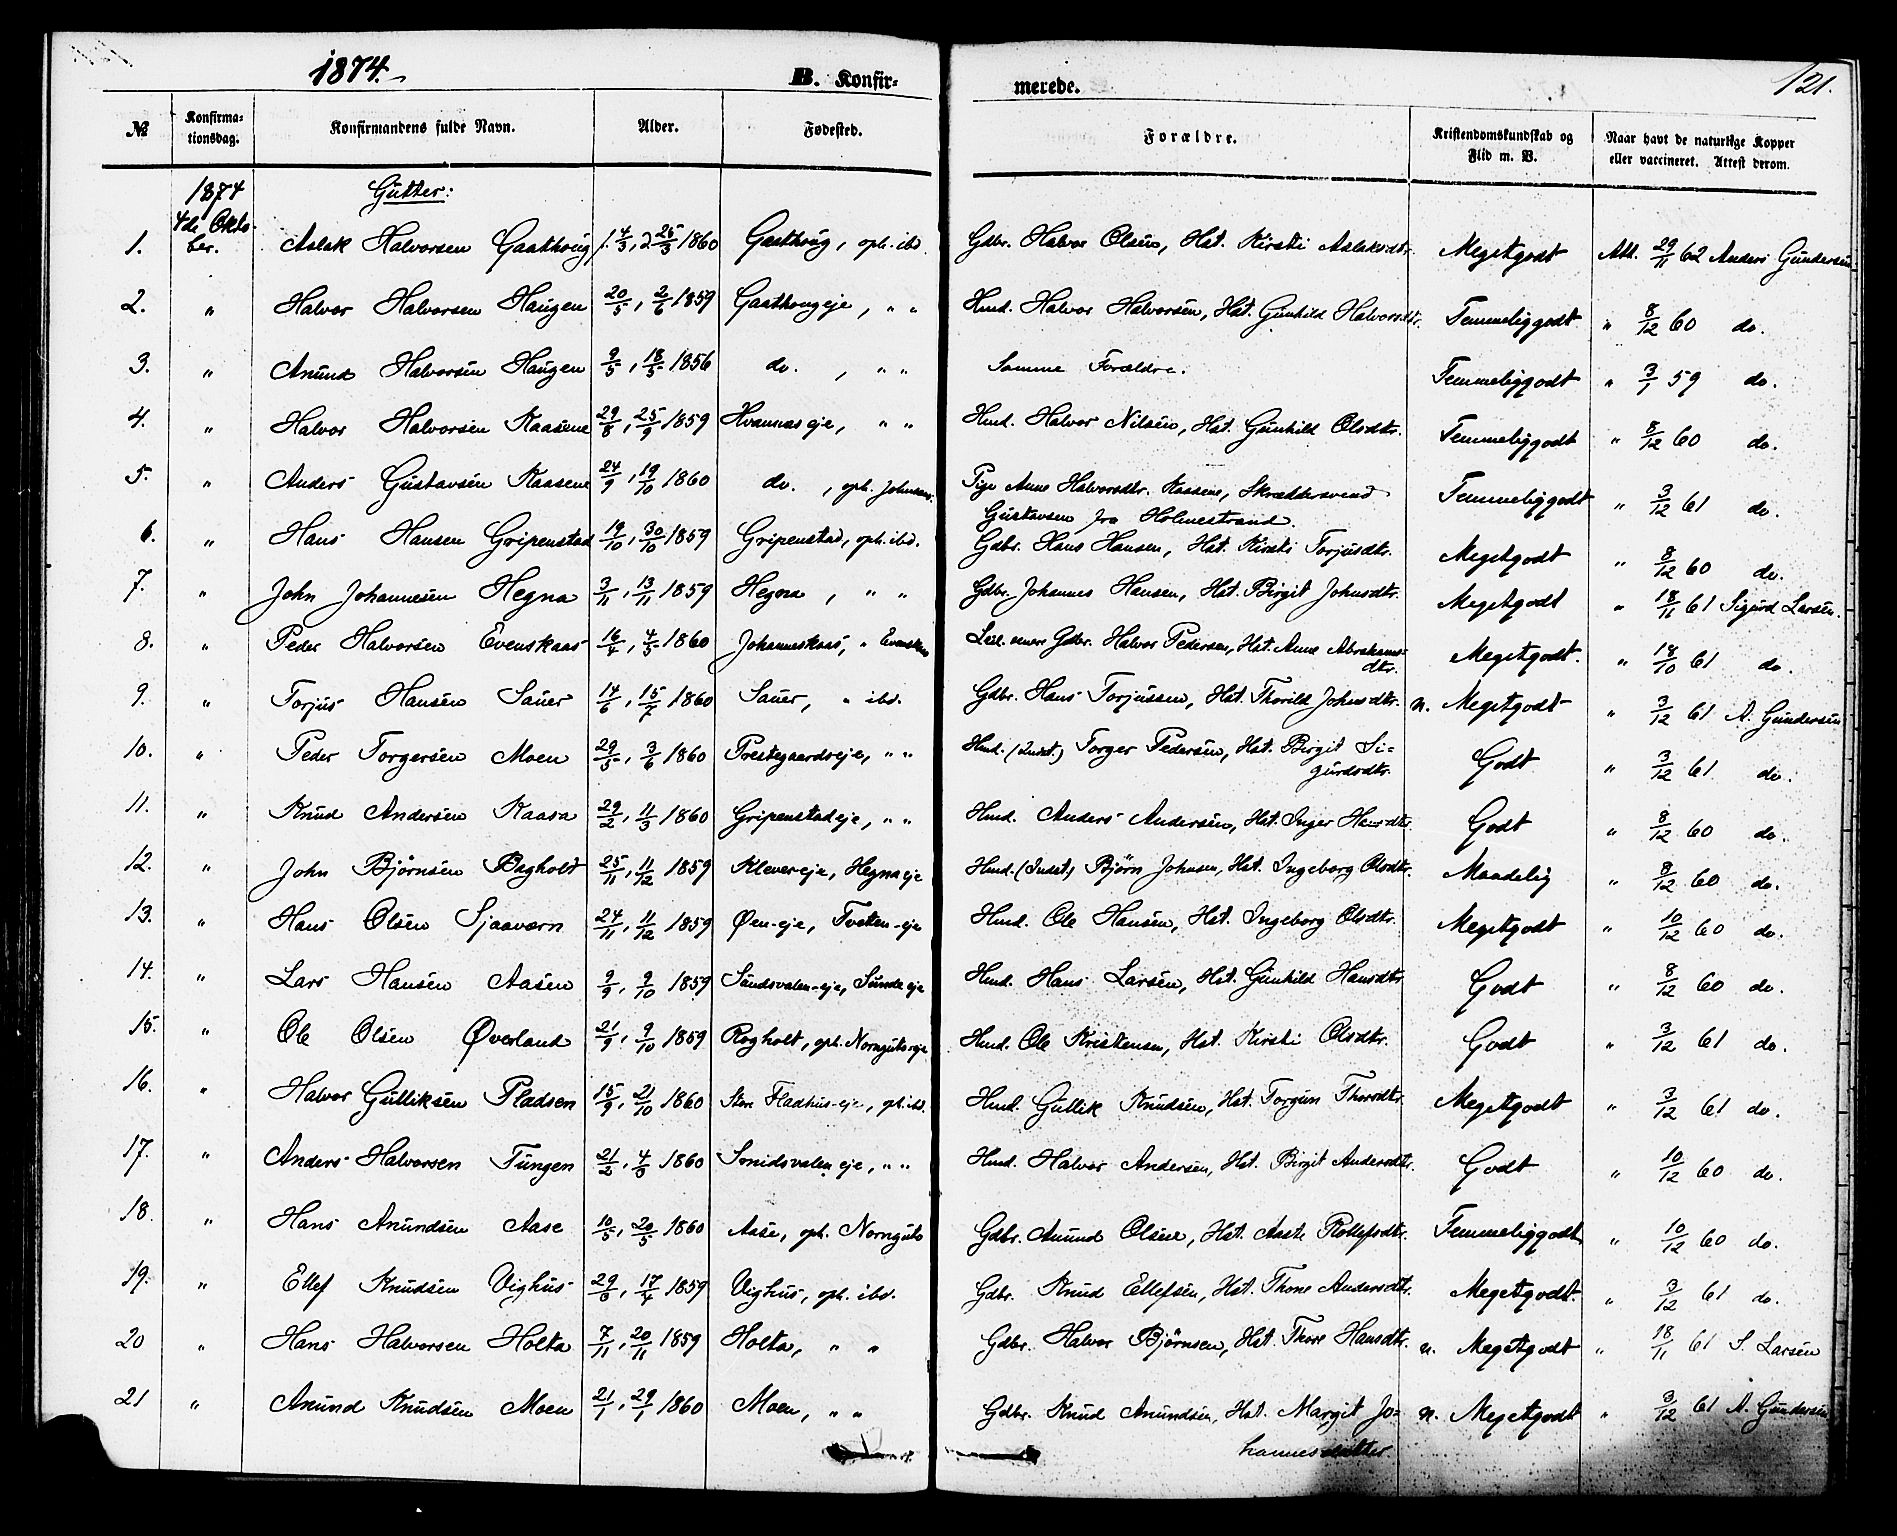 1874.
B. Konfir=
merede.
121.
№
Konfirma=
tionsdag.
Konfirmandens fulde Navn.
Alder.
Fødested.
Forældre.
Kristendomskundskab og
Flid m. V.
Naar havt de naturlige Kopper
eller vaccineret. Attest derom.
1874 Gutter:
4de Okto-
1. ber. Aslak Halvorsen Gaathoug f. 4/3, d 25/3 1860 Gaathoug, oph. ibd. Gdbr. Halvor Olsen, Hst. Kirsti Aslaksdtr. Megetgodt Att. 29/11 62 Anders Gundersen
2. " Halvor Halvorsen Haugen 20/5, 2/6 1859 Gaathougeje, " " Hmd. Halvor Halvorsen, Hst. Gunhild Halvorsdtr. Temmeliggodt " 8/12 60 do.
3. " Anund Halvorsen Haugen 9/5, 18/5 1856 do. , " " Samme Forældre. Temmeliggodt " 3/1 59 do.
4. " Halvor Halvorsen Kaasene 29/8, 25/9 1859 Hvannæseje, " " Hmd. Halvor Nilsen, Hst. Gunhild Olsdtr. Temmeliggodt " 8/12 60 do.
5. " Anders Gustavsen Kaasene 24/9, 19/10 1860 do. , oph. Johnsaas. Pige Anne Halvorsdtr. Kaasene, Skræddersvend Temmeliggodt " 3/12 61 do.
Gustavsen fra Holmestrand.
6. " Hans Hansen Gripenstad 19/10, 30/10 1859 Gripenstad, oph. ibd. Gdbr. Hans Hansen, Hst. Kirsti Torjusdtr. Megetgodt " 8/12 60 do.
7. " John Johannesen Hegna 3/11, 13/11 1859 Hegna, " " Gdbr. Johannes Hansen, Hst. Birgit Johnsdtr. Megetgodt " 18/11 61 Sigurd Larsen.
8. " Peder Halvorsen Evenskaas 16/4, 4/5 1860 Johanneskaas, " Evenskaas Gdbr. Halvor Pedersen, Hst. Anne Abrahams-
dtr. Megetgodt. " 18/10 61 do.
9. " Torjus Hansen Sauer 14/6, 15/7 1860 Sauer, " ibd. Gdbr. Hans Torjussen, Hst. Thorild Johnsdtr. n. Megetgodt " 3/12 61 A. Gundersen
10. " Peder Torgersen Moen 29/5, 3/6 1860 Prestegaardseje, " " Hmd. (Indst.) Torger Pedersen, Hst. Birgit Si=
gurdsdtr. Godt " 3/12 61 do.
11. " Knud Andersen Kaasa 29/2, 11/3 1860 Gripenstadeje, " " Hmd. Anders Andersen, Hst. Inger Hansdtr. Godt " 8/12 60 do.
12. " John Bjørnsen Bagholt 25/11, 11/12 1859 Klevereje, Hegnaeje Hmd. (Indst) Bjørn Johnsen, Hst. Ingeborg Olsdtr. Maadelig " 8/12 60 do.
13. " Hans Olsen Sjaaværn 24/11, 11/12 1859 Øen-eje, Tveten-eje Hmd. Ole Hansen, Hst. Ingeborg Olsdtr. Megetgodt " 10/12 60 do.
14. " Lars Hansen Aasen 9/9, 9/10 1859 Sundsvalen-eje, Sundeeje Hmd. Hans Larsen, Hst. Gunhild Hansdtr Godt " 8/12 60 do.
15. " Ole Olsen Øverland 21/9, 9/10 1859 Rogholt, oph. Norngutseje Hmd. Ole Kristensen, Hst. Kirsti Olsdtr. Godt " 3/12 61 do.
16. " Halvor Gulliksen Pladsen 15/9, 21/10 1860 Sten Fladhus-eje, op. ibd. Hmd. Gullik Knudsen, Hst. Torgun Thorsdtr. Megetgodt " 3/12 61 do.
17. " Anders Halvorsen Tungen 21/2, 4/3 1860 Smidsvalen eje, " " Hmd. Halvor Andersen, Hst. Birgit Andersdtr. Godt " 10/12 60 do.
18. " Hans Anundsen Aase 10/5, 20/5 1860 Aase, oph. Nornguts Gdbr. Anund Olsen, Hst. Aaste Rollefsdtr. Temmeliggodt " 10/12 60 do.
19. " Ellef Knudsen Vighus 29/3, 17/4 1859 Vighus, oph. ibd. Gdbr. Knud Ellefsen, Hst. Thone Andersdtr. Megetgodt. " 3/12 61 do.
20 " Hans Halvorsen Holta 7/11, 20/11 1859 Holta, " " Gdbr. Halvor Bjørnsen, Hst. Thore Hansdtr. n. Megetgodt " 18/11 61 S. Larsen
21 " Anund Knudsen Moen 21/1, 29/1 1860 Moen, " " Gdbr. Knud Anundsen, Hst. Margit Jo= n. Megetgodt " 3/12 61 A. Gundersen
hannesdatter.